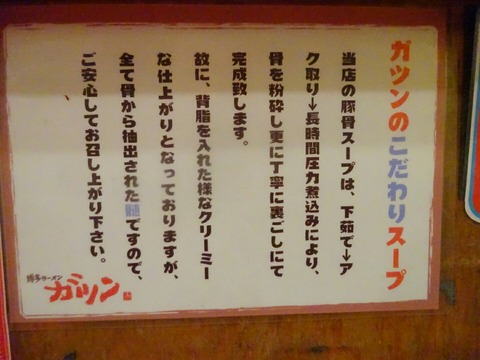 ガツンのこだわりスープ
当店の豚骨スープは、下茹で→ア
ク取り→長時間圧力煮込みにより、
骨を粉砕し更に丁寧に裏ごしにて
完成致します。
故に、背脂を入れた様なクリーミー
な仕上がりとなっておりますが、
全て骨から抽出された髄ですので、
ご安心してお召し上がり下さい。
博多ラーメン
ガツン